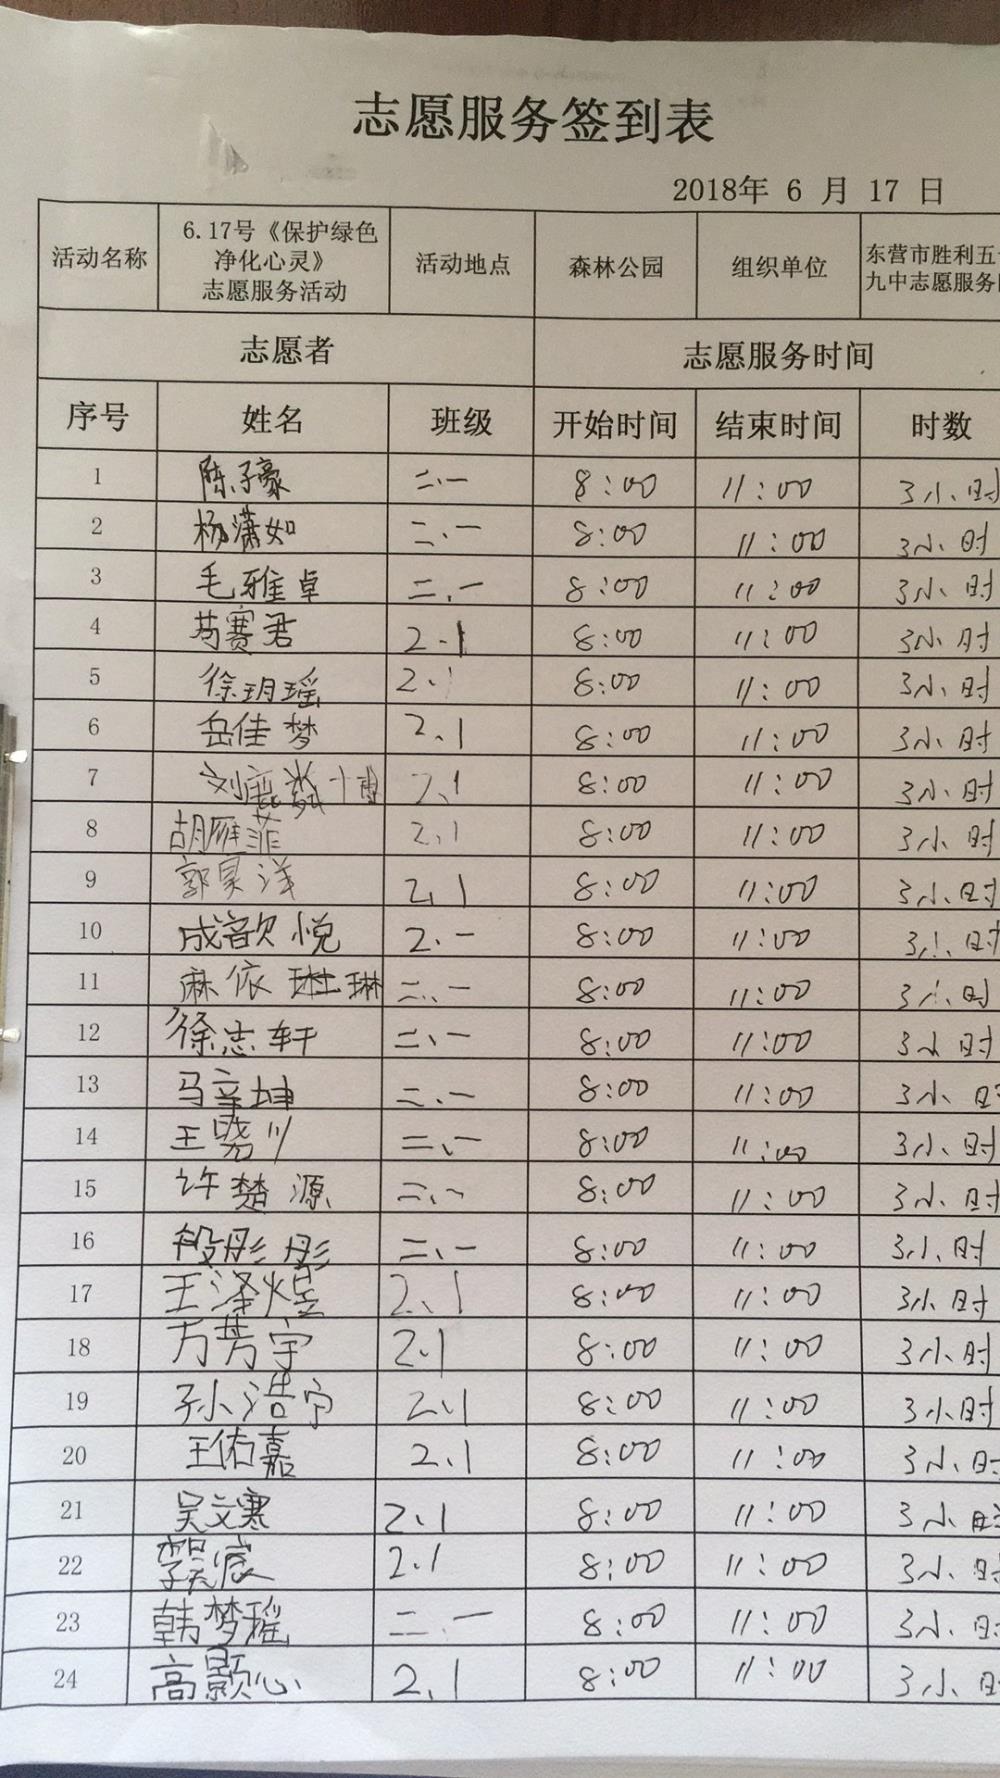 志愿服务签到表
2018年 6 月 17 日
活动名称 6.17号《保护绿色净化心灵》志愿服务活动 活动地点 森林公园 组织单位 东营市胜利五 九中志愿服务
志愿者 志愿服务时间
序号 姓名 班级 开始时间 结束时间 时数
1 陈子豪 二.一 8:00 11:00 3小时
2 杨潇如 二.一 8:00 11:00 3小时
3 毛雅卓 二.一 8:00 11:00 3小时
4 苟赛君 2.1 8:00 11:00 3小时
5 徐玥瑶 2.1 8:00 11:00 3小时
6 岳佳梦 2.1 8:00 11:00 3小时
7 刘 2.1 8:00 11:00 3小时
8 胡雁菲 2.1 8:00 11:00 3小时
9 郭昊洋 2.1 8:00 11:00 3小时
10 成歆悦 2.一 8:00 11:00 3小时
11 麻依琳 二.一 8:00 11:00 3小时
12 徐志轩 二.一 8:00 11:00 3小时
13 马辛坤 二.一 8:00 11:00 3小时
14 王晓川 二.一 8:00 11:00 3小时
15 许楚源 二.一 8:00 11:00 3小时
16 段彤彤 二.一 8:00 11:00 3小时
17 王泽煜 2.1 8:00 11:00 3小时
18 万芳宇 2.1 8:00 11:00 3小时
19 孙浩宁 2.1 8:00 11:00 3小时
20 王佑嘉 2.1 8:00 11:00 3小时
21 吴文寒 2.1 8:00 11:00 3小时
22 2.1 8:00 11:00 3小时
23 韩梦瑶 二.一 8:00 11:00 3小时
24 高颢心 2.1 8:00 11:00 3小时